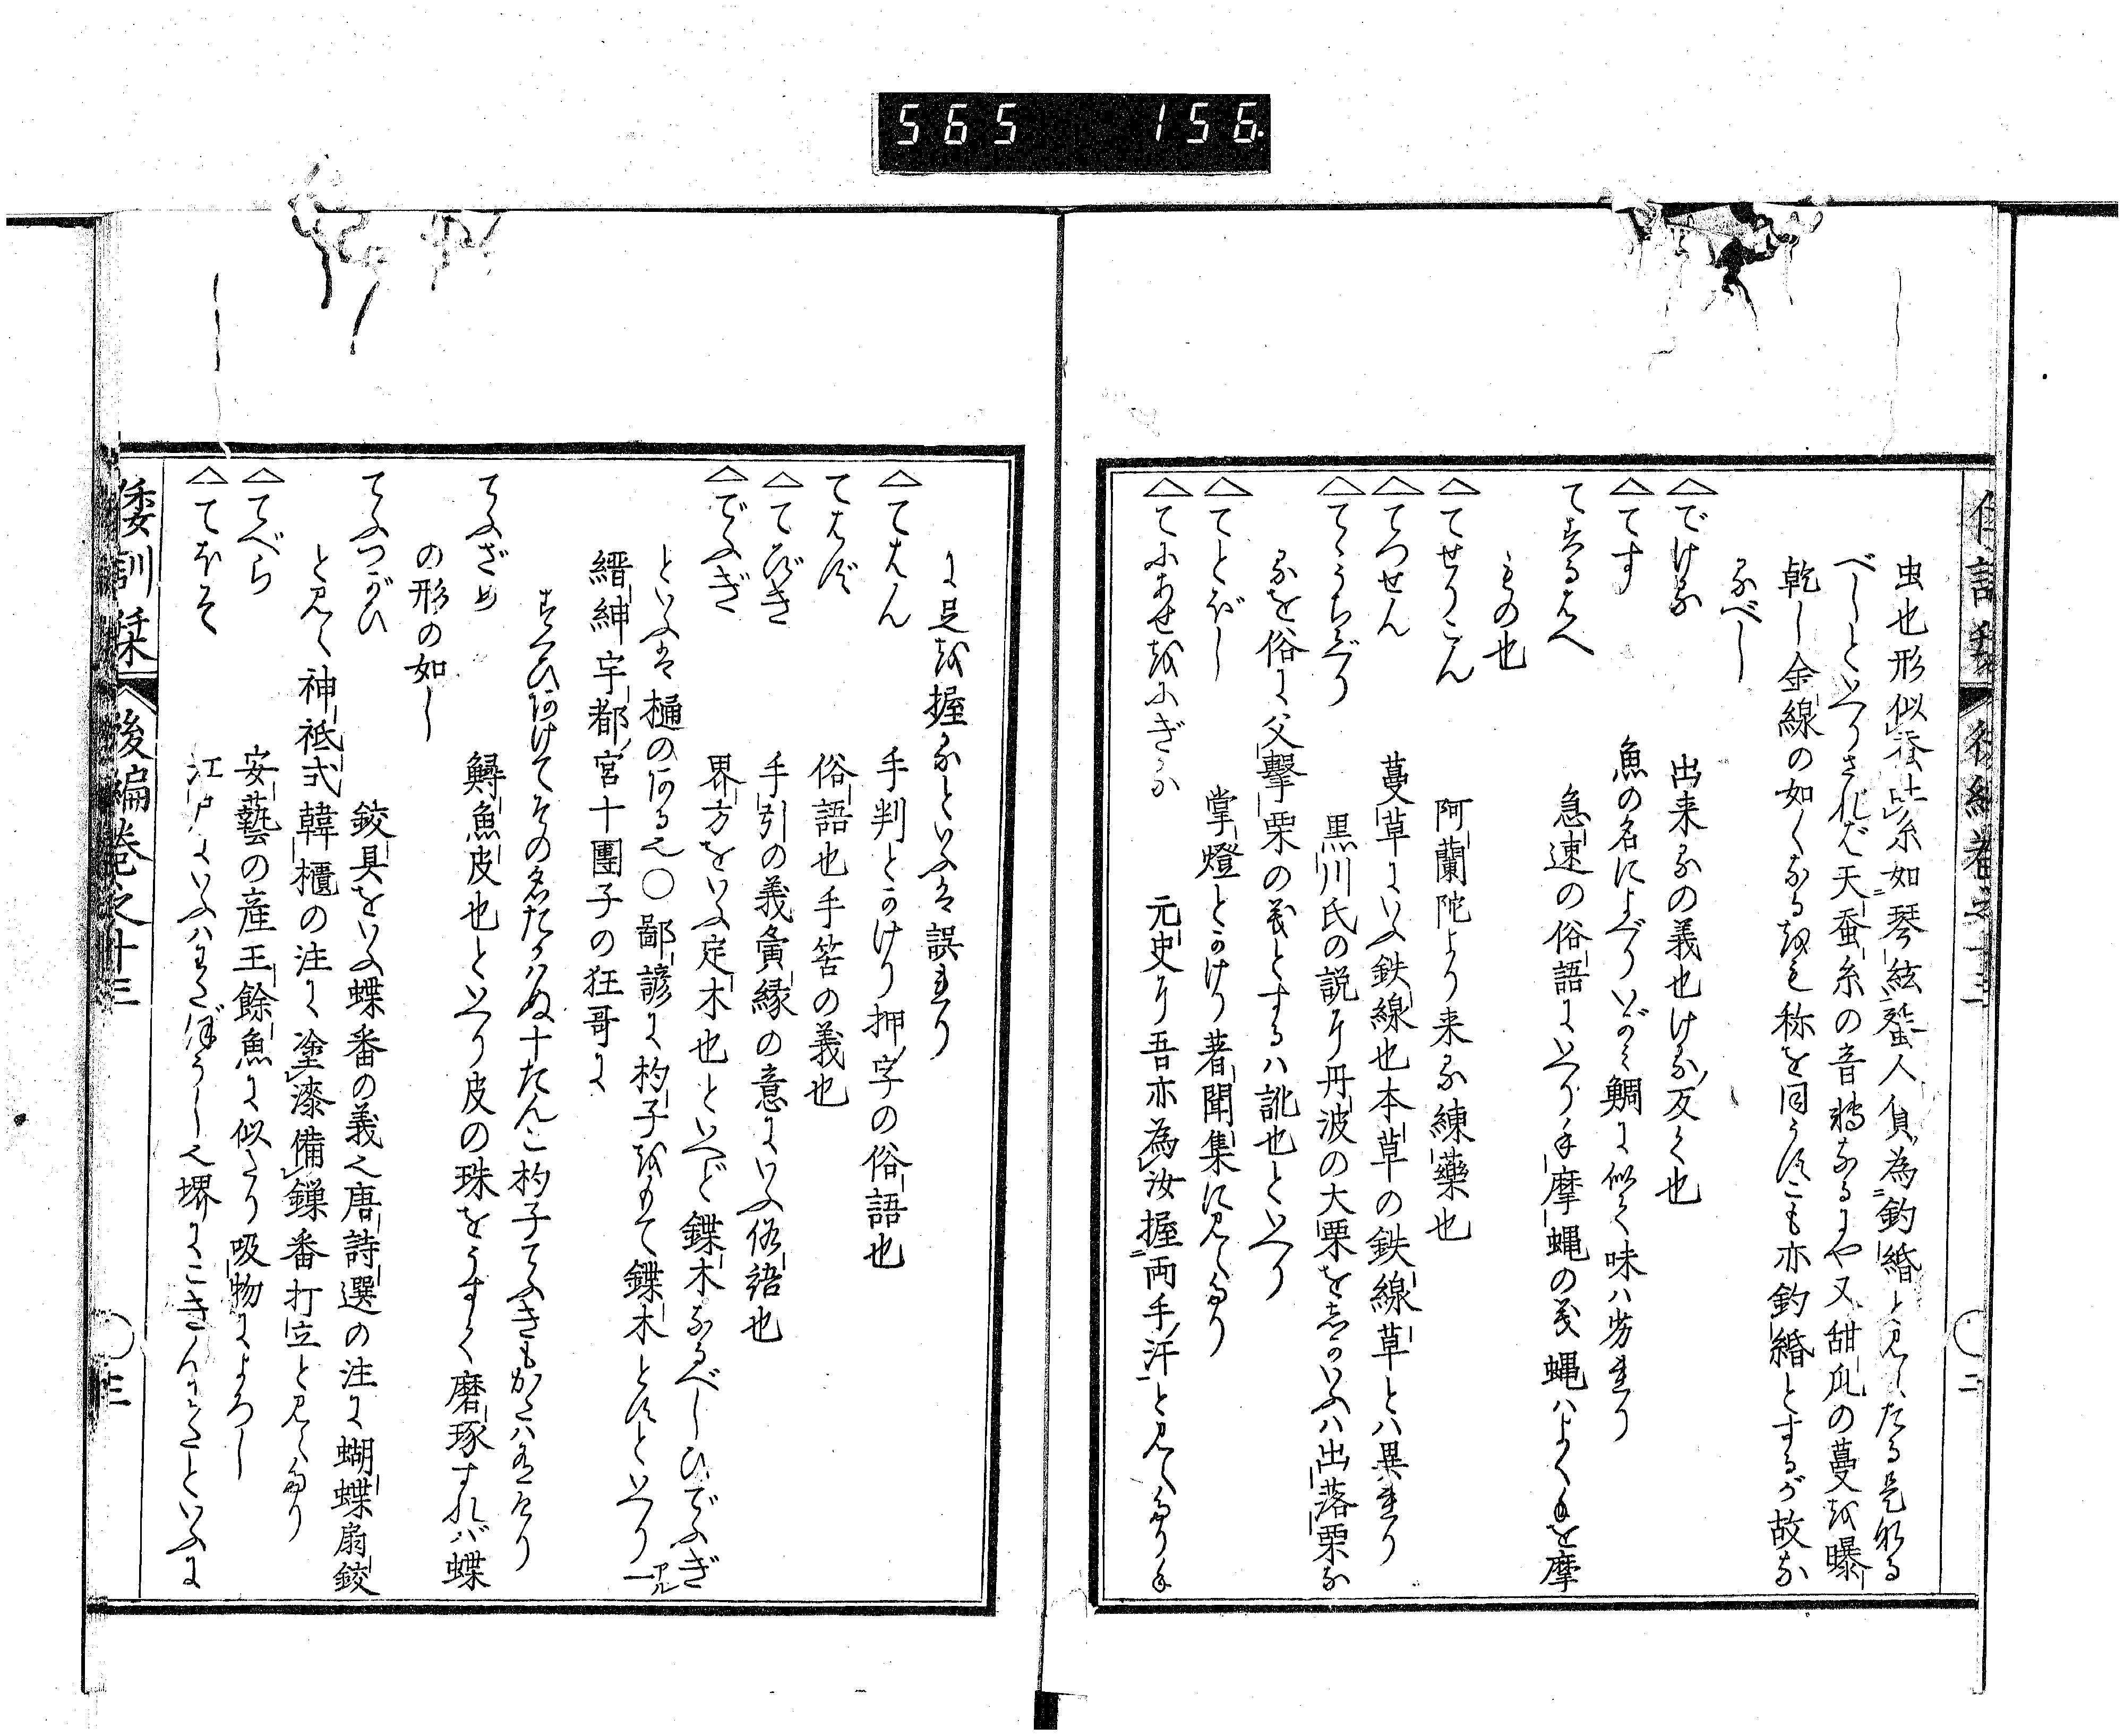 565 156
虫也形似蚕此糸如琴絃蜑人負為釣緡と見えたる是なる
べしといへりされば天蚕糸の音轉なるにや又甜瓜の蔓を曝
乾し金線の如くなるをも称を同うすこも亦釣緡とするが故な
るべし
△でける 出来るの義也ける反く也
△てす 魚の名によべり いがみ鯛に似て味ハ劣れり
てするはへ 急速の俗語にいへり手摩蝿の義蝿ハよく手を摩
もの也
△てせりこん 阿蘭陀より来る練藥也
△てつせん 蔓草にいふ鉄線也本草の鉄線草とハ異れり
△てゝうちぐり 黒川氏の説に丹波の大栗をしかいふハ出落栗な
るを俗に父撃栗の義とするハ訛也といへり
△てとぼし 掌燈とかけり著聞集に見えたり
△てにあせをにぎる 元史に吾亦為汝握両手汗と見えたり手
に足を握るといふは誤れり
△てはん 手判とかけり押字の俗語也
てはず 俗語也手筈の義也
△てびき 手引の義夤縁の意にいふ俗語也
△でふぎ 界方をいふ定木也といへど鐷木なるべしひでふぎ
といふは樋のある也○鄙諺に杓子をもて鐷木とすといへり アル
縉紳宇都宮十團子の狂哥に
しひあけてその名たかハぬ十たんこ杓子てふきもかたハなりけり
てふざめ 鱘魚皮也といへり皮の珠をうすく磨琢すれバ蝶
の形の如し
てふつがひ 鉸具をいふ蝶番の義也唐詩選の注に蝴蝶扇鉸
と見え神祇式韓櫃の注に塗漆備鏁番打立と見えたり
△てべら 安藝の産王餘魚に似たり吸物によろし
△てほそ 江戸にいふハわたぼうし也堺にこきんわたといふに
倭訓栞 後編巻之十三 ○三